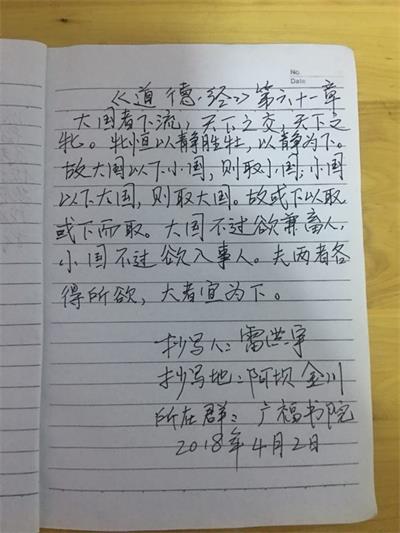 No.
Date
《道德经》第六十一章
大国者下流，天下之交，天下之
牝。牝恒以静胜牡，以静为下。
故大国以下小国，则取小国；小国
以下大国，则取大国。故或下以取
或下而取。大国不过欲兼畜人，
小国不过欲入事人。夫两者各
得所欲，大者宜为下。
抄写人：雷洪宇
抄写地：阿坝金川
所在群：广福书院
2018年4月2日